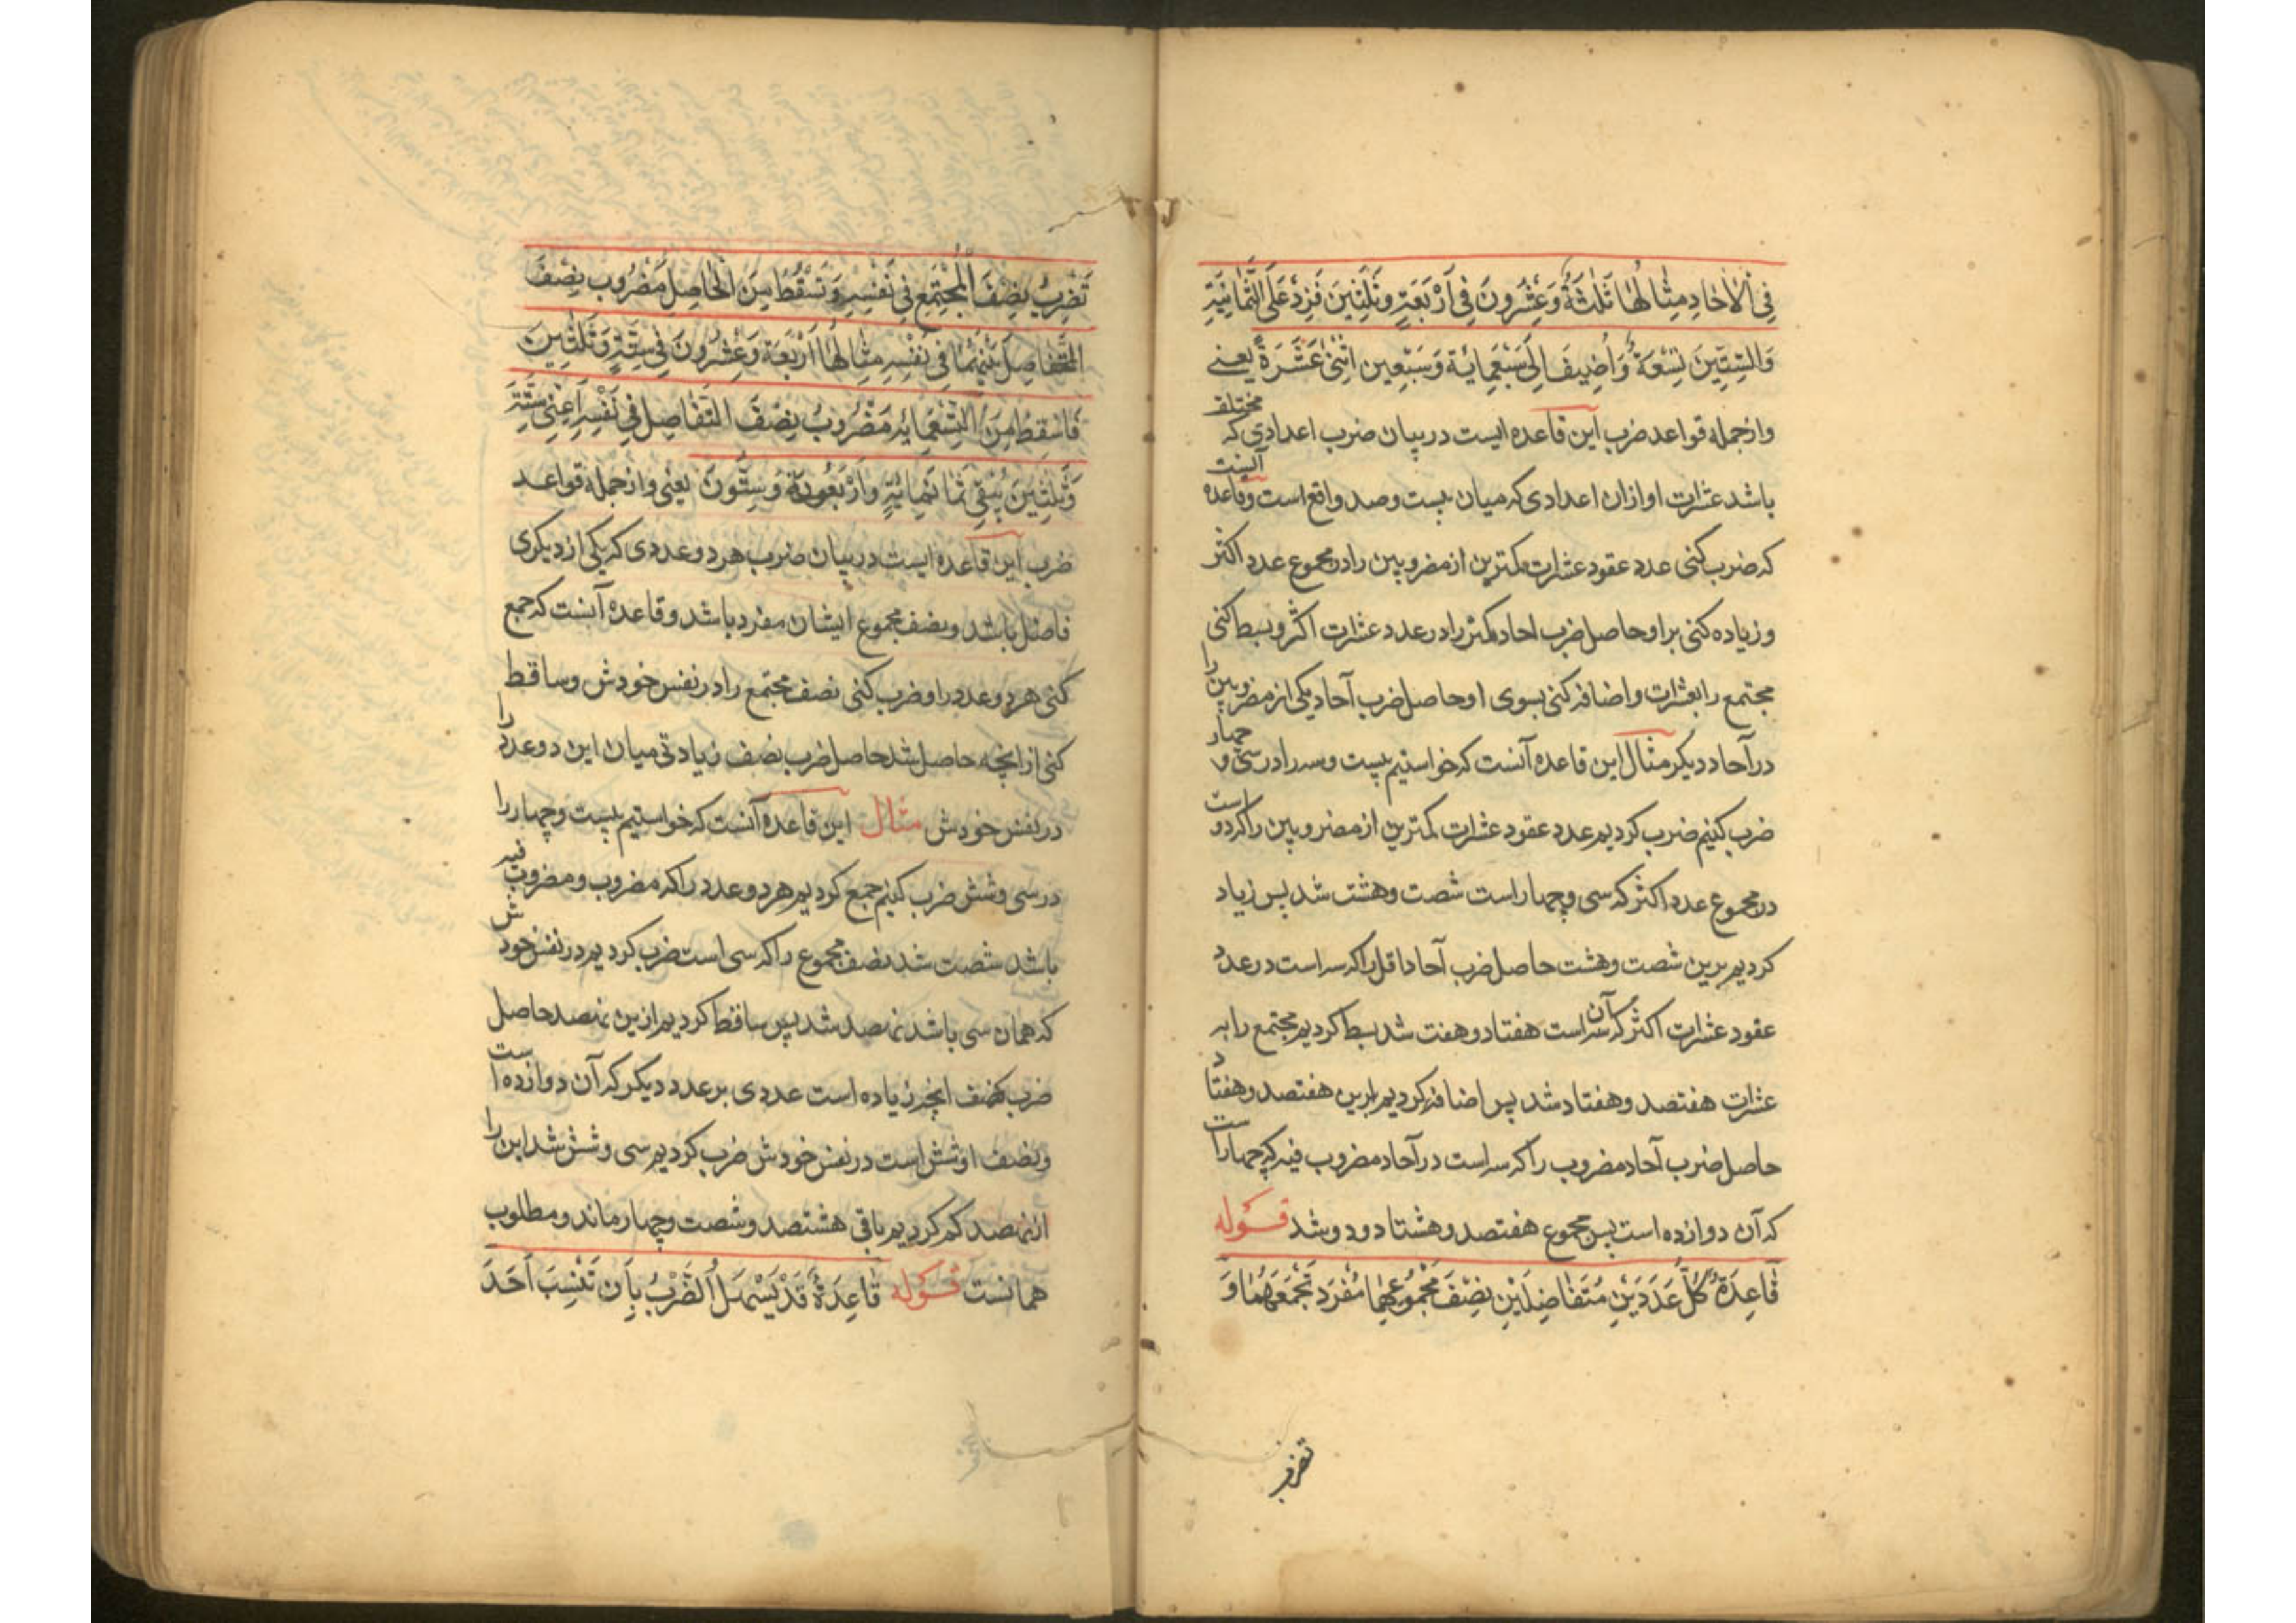 فِی الْاٰحادِ مِثٰالُهٰا ثَلٰثَةٌ وَعِشْرُونَ فِی اَرْبَعَةٍ وَثَلٰثِینَ فَزِدْ عَلَی الثَّمٰانِیَةِ
وَالسِّتِّینَ تِسْعَةً وَاَضِیفَ اِلٰی سَبْعِمِایَٔةَ وَسَبْعِینَ اِثْنٰی عَشَرَةً یعنے
وازجمله قواعد ضرب این قاعده ایست در بیان ضرب اعدادی که مختلف
باشد عشرات او ازان اعدادی که میان بیست وصد واقع است وقاعده آنست
که ضرب کنی عدد عقود عشرات کمترین از مضروبین را در مجموع عدد اکثر
وزیاده کنی براو حاصل ضرب احاد کمتر را در عدد عشرات اکثر وبسط کنی
مجتمع را بعشرات واضافه کنی بسوی او حاصل ضرب آحاد یکی از مضروبین را
در آحاد دیکر مثال این قاعده آنست که خواستیم بیست وسه را در سی و چهار
ضرب کنیم ضرب کردیم عدد عقود عشرات کمترین از مضروبین را که دو است
در مجموع عدد اکثر که سی وچهار است شصت وهشت شد پس زیاد
کردیم برین شصت وهشت حاصل ضرب آحاد اقل را که سه است در عدد
عقود عشرات اکثر که آن سه است هفتاد وهفت شد بسط کردیم مجتمع را به
عشرات هفتصد وهفتاد شد پس اضافه کردیم براین هفتصد وهفتاد
حاصل ضرب آحاد مضروب را که سه است در آحاد مضروب فیه که چهار است
که آن دوازده است پس مجموع هفتصد وهشتاد ودو شد قوله
قٰاعِدَةٌ کُلُّ عَدَدَیْنِ مُتَفٰاضِلَیْنِ نِصْفَ مَجْمُوعِهِمٰا مُفْرَد تَجْمَعَهُمٰا وَ
تضرب
تَضْرِبُ نِصْفَ الْمُجْتَمِعِ فِی نَفْسِهِ وَتَسْقُطُ مِنَ الْحٰاصِلِ مَضْرُوب نِصْفَ
التَّفٰاضِلَ بَیْنَهُمٰا فِی نَفْسِهِ مِثٰالُهٰا اَرْبَعَة وَعِشْرُونَ فِی سِتَّةٍ وَثَلٰثِینَ
فَاَسْقِطُ مِنَ التِّسْعَمِایَٔهِ مَضْرُوبُ نِصْفَ التَفٰاصِلِ فِی نَفْسِهِ اَعْنِی سِتَّةَ
وَثَلٰثِینَ یَبْقِی ثَمٰانَمِایَٔةٍ وَاَرْبَعُونَ وَسِتُّونَ یعنی وازجمله قواعد
ضرب این قاعده ایست در بیان ضرب هر دو عددی که یکی از دیکری
فاضل باشد ونصف مجموع ایشان مفرد باشد وقاعده آنست که جمع
کنی هر دو عدد را وضرب کنی نصف مجتمع را در نفس خودش وساقط
کنی از انچه حاصل شد حاصل ضرب نصف زیادتی میان این دو عدد را
در نفس خودش مثال این قاعده آنست که خواستیم بیست وچهار را
در سی وشش ضرب کنیم جمع کردیم هر دو عدد را که مضروب ومضروب فیه
باشد شصت شد نصف مجموع را که سی است ضرب کردیم در نفس خودش
که همان سی باشد نهصد شد پس ساقط کردیم ازین نهصد حاصل
ضرب نصف انچه زیاده است عددی بر عدد دیکر که آن دوازده است
ونصف او شش است در نفس خودش ضرب کردیم سی وشش شد این را
از نهصد کم کردیم باقی هشتصد وشصت وچهار ماند ومطلوب
همانست قوله قٰاعِدَةٌ قَدْ یَسْهَلُ الضَّرْبُ بِاَن تَنْسِبَ اَحَدَ